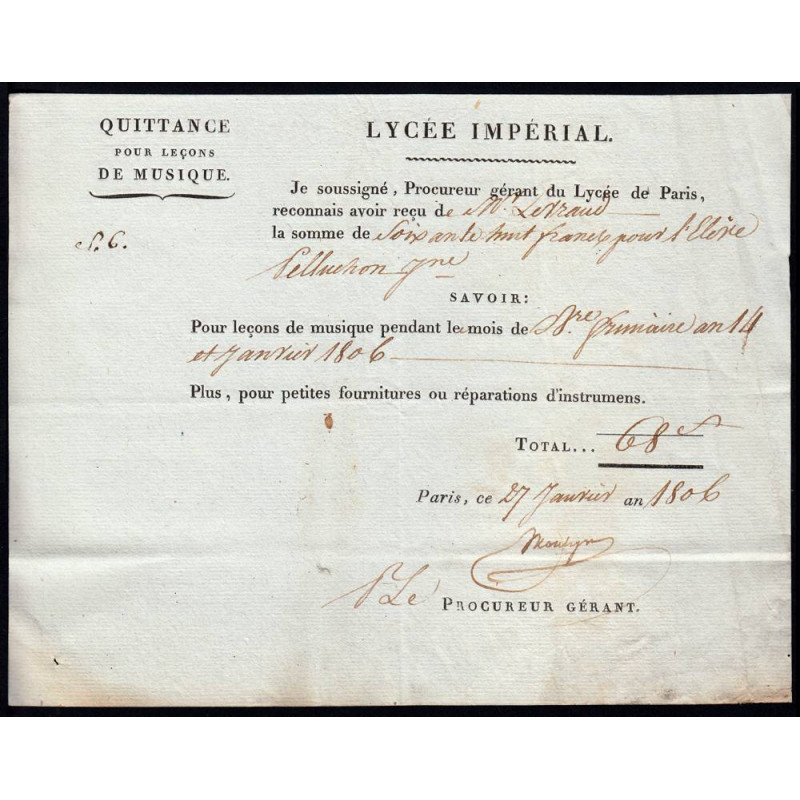 QUITTANCE
POUR LEÇONS
DE MUSIQUE.
LYCÉE IMPÉRIAL.
Je soussigné, Procureur gérant du Lycée de Paris,
reconnais avoir reçu de Mr. Levraud
la somme de Soixante huit francs pour l'Elève
Pelluchon jne
SAVOIR:
Pour leçons de musique pendant les mois de frimaire an 14
et Janvier 1806
Plus, pour petites fournitures ou réparations d'instrumens.
TOTAL... 68 f
Paris, ce 27 Janvier an 1806
Pr Le PROCUREUR GÉRANT.